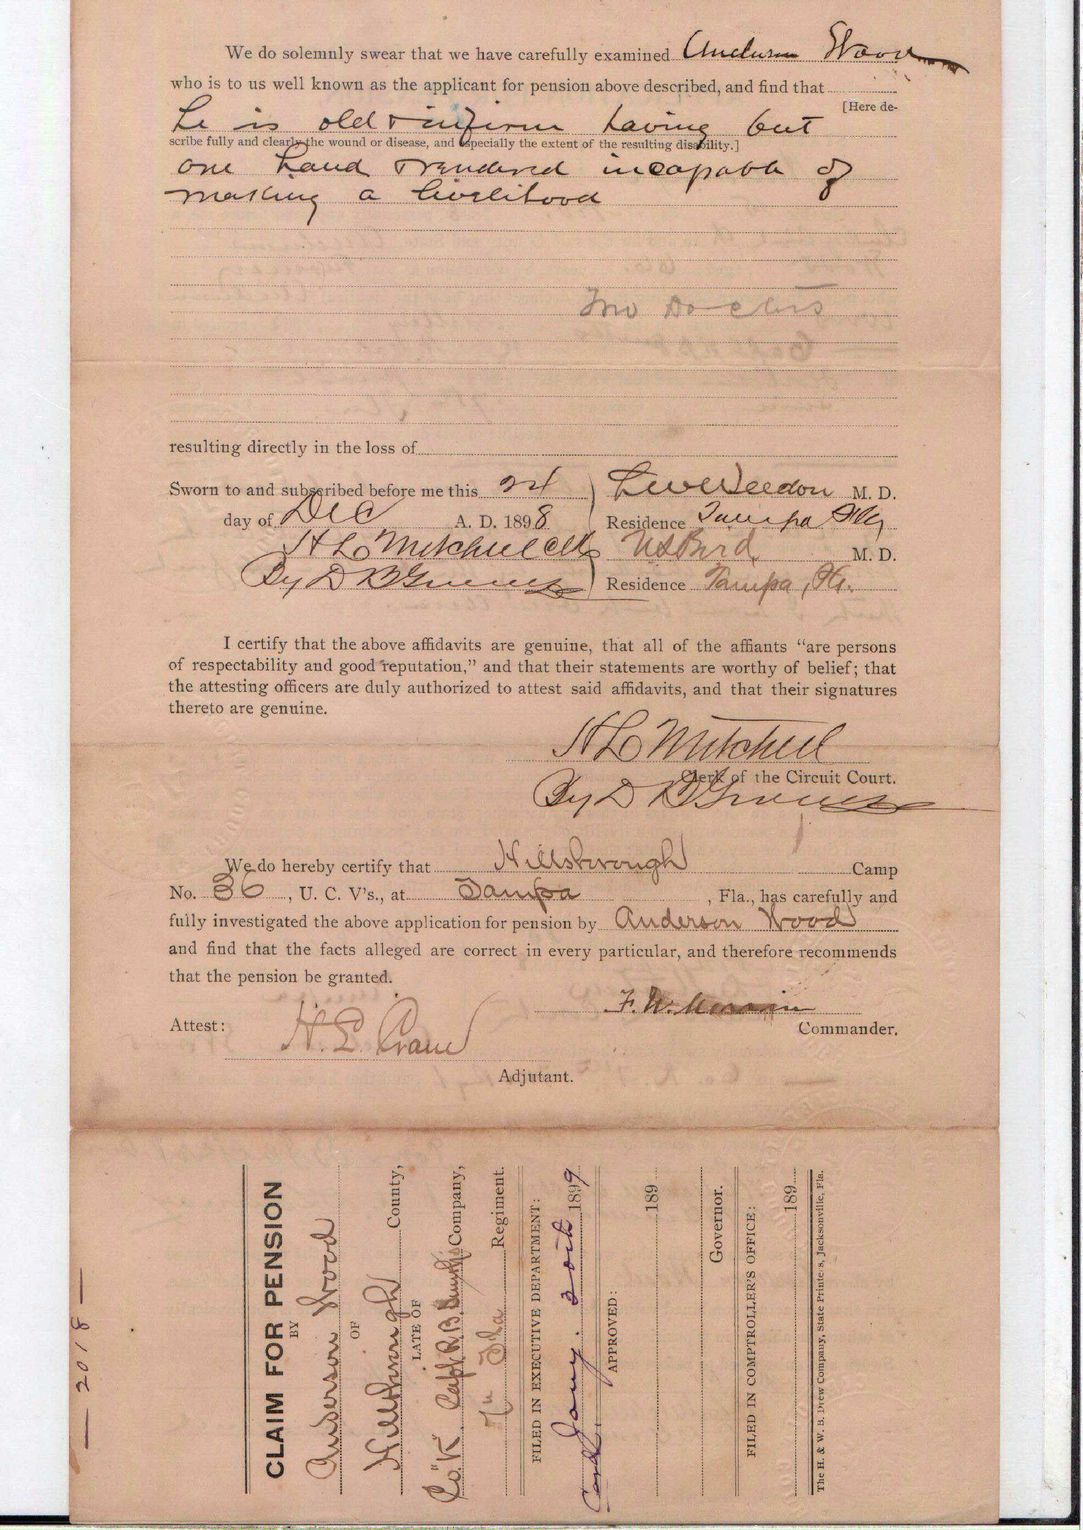 We do solemnly swear that we have carefully examined Anderson Wood
who is to us well known as the applicant for pension above described, and find that
[Here de-
he is old & infirm having but
scribe fully and clearly the wound or disease, and especially the extent of the resulting disability.]
one hand & rendered incapable of
making a livelihood
Two Doctors
resulting directly in the loss of
Sworn to and subscribed before me this 24
day of Dec A. D. 1898
H L Mitchell Clk
By D B Givens
L W Weedon M. D.
Residence Tampa Fla
U S Bird M. D.
Residence Tampa, Fla.
I certify that the above affidavits are genuine, that all of the affiants "are persons
of respectability and good reputation," and that their statements are worthy of belief; that
the attesting officers are duly authorized to attest said affidavits, and that their signatures
thereto are genuine.
H L Mitchell
Clerk of the Circuit Court.
By D B Givens
We do hereby certify that Hillsborough Camp
No. 36, U. C. V's., at Tampa, Fla., has carefully and
fully investigated the above application for pension by Anderson Wood
and find that the facts alleged are correct in every particular, and therefore recommends
that the pension be granted.
F. W.
Commander.
Attest: H. L. Crane
Adjutant.
— 2018 —
CLAIM FOR PENSION
BY
Anderson Wood
OF
Hillsborough County,
LATE OF
Co. "K" Capt R. B. Company,
7th Fla Regiment.
FILED IN EXECUTIVE DEPARTMENT:
Jany. 1899
APPROVED:
189
Governor.
FILED IN COMPTROLLER'S OFFICE:
189
The H. & W. B. Drew Company, State Printers, Jacksonville, Fla.